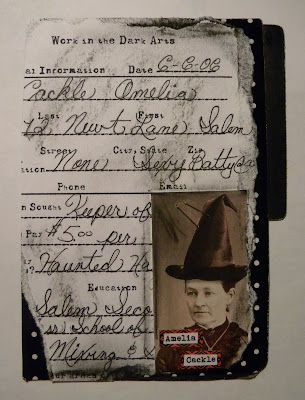 Work in the Dark Arts
al Information Date 6-6-06
Cackle Amelia
Last First
12 Newt Lane Salem
Street City, State Zip
None SexyBatty@a
Phone Email
n Sought Keeper of
Pay $5.00 per
Haunted Ha
Education
Salem Seco
School of
Mixing &
Amelia
Cackle